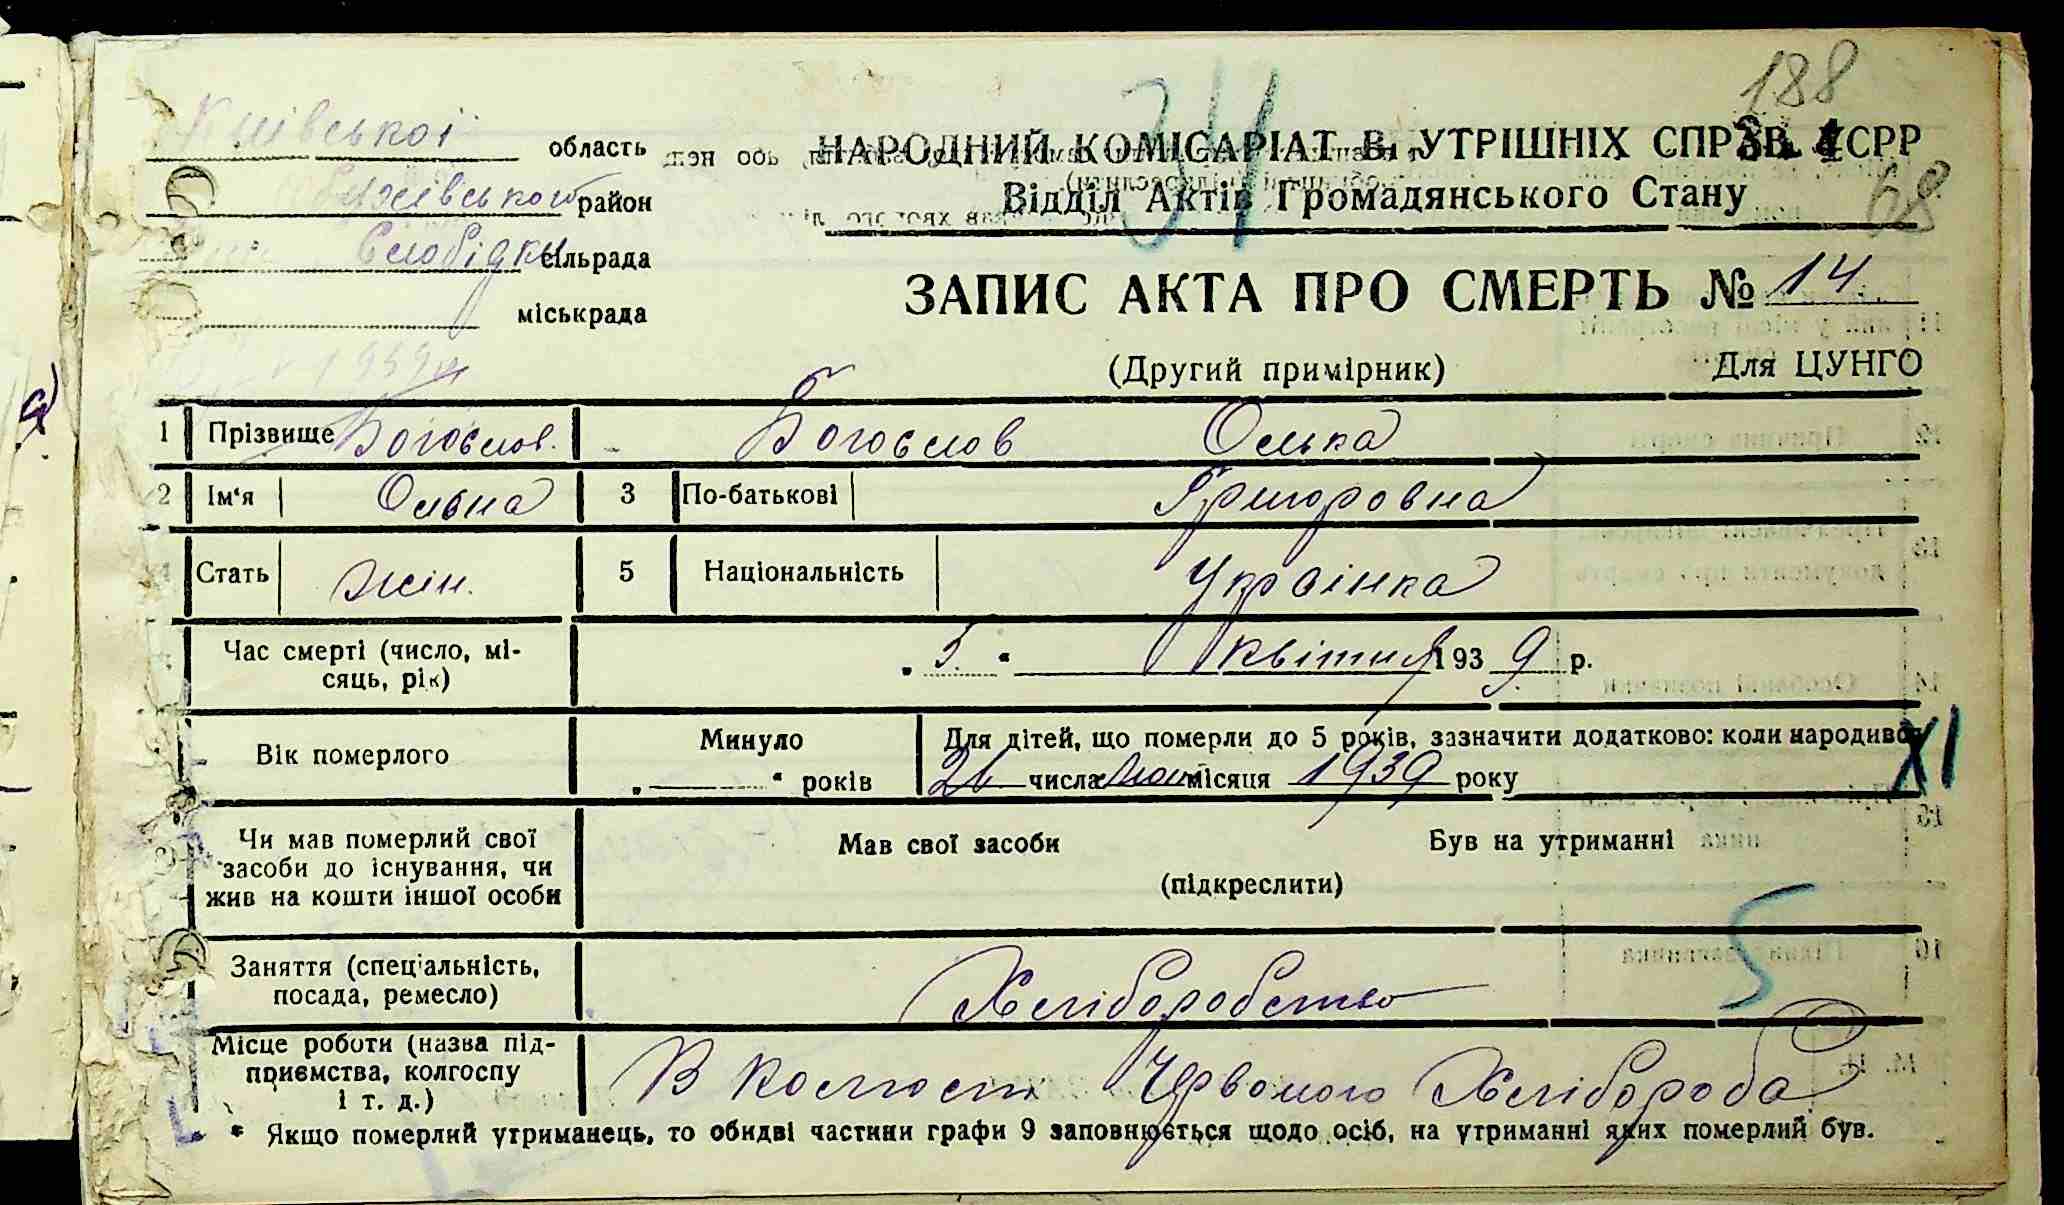 188
34
Київської область
НАРОДНИЙ КОМІСАРІАТ В. УТРІШНІХ СПРАВ УСРР
район
Відділ Актів Громадянського Стану
68
Слобідка сільрада
ЗАПИС АКТА ПРО СМЕРТЬ № 14
міськрада
(Другий примірник) Для ЦУНГО
1 Прізвище Богослов. Богослов Олька
2 Ім‘я Ольна 3 По-батькові Григоровна
Стать жін. 5 Національність Украінка
Час смерті (число, мі-
сяць, рік) „ 5. “ квітня 193 9 р.
Вік померлого Минуло „ — “ років
Для дітей, що померли до 5 років, зазначити додатково: коли народивс
числа місяця 1939 року
XI
Чи мав померлий свої
засоби до існування, чи
жив на кошти іншої особи
Мав свої засоби Був на утриманні
(підкреслити)
5
Заняття (спеціальність,
посада, ремесло) Хліборобство
Місце роботи (назва під-
приємства, колгоспу
і т. д.) В колгоспі Хлібороба
* Якщо померлий утриманець, то обидві частини графи 9 заповнюється щодо осіб, на утриманні яких померлий був.